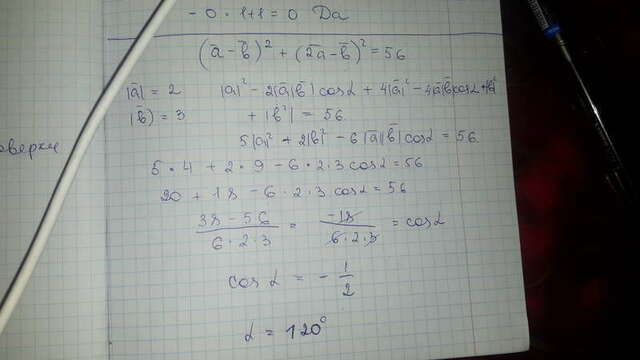 - 0 · 1+1 = 0 Да
(a̅ - b̅)² + (2a̅ - b̅)² = 56
|a̅| = 2 |a|² - 2|a̅||b̅| cos α + 4|a̅|² - 4|a̅||b̅| cos α + |b̅|²
|b̅) = 3 + |b²| = 56
5|a|² + 2|b̅|² - 6|a̅||b̅| cos α = 56
5 · 4 + 2 · 9 - 6 · 2 · 3 cos α = 56
20 + 18 - 6 · 2 · 3 cos α = 56
(38 - 56)/(6 · 2 · 3) = -18/(6 · 2 · 3) = cos α
cos α = - 1/2
α = 120°